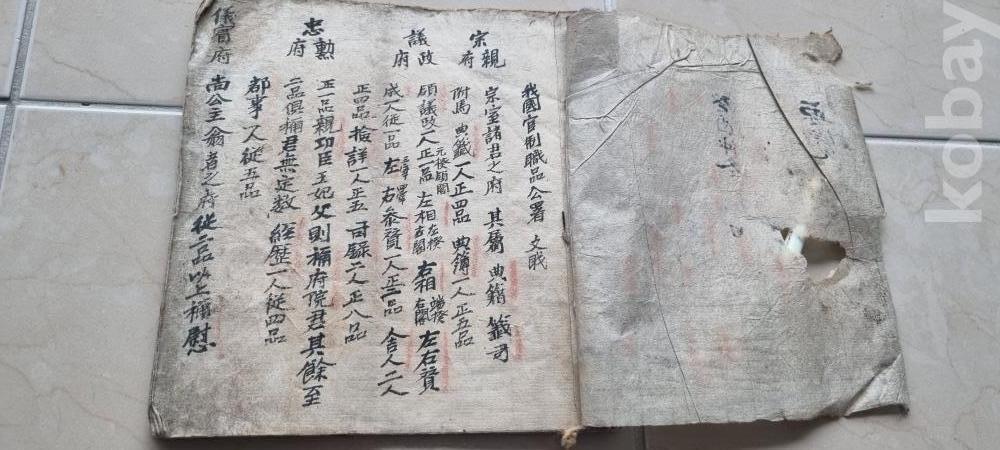 我國官制職品公署
宗親府
宗室諸君之府 其屬 典籍 籤司
附馬 典籤一人正四品 典簿一人正五品
議政府
領議政一人正一品 左相 右相 左右賛
成一人從一品 左右叅賛一人正二品 舍人二人
正四品 檢詳一人正五 司錄二人正八品
忠勳府
正一品親功臣王妃父則稱府院君其餘至
二品俱稱君無定数 經歷一人從四品
都事一人從五品
儀賓府
尚公主翁者之府 從二品以上稱慰
kobay